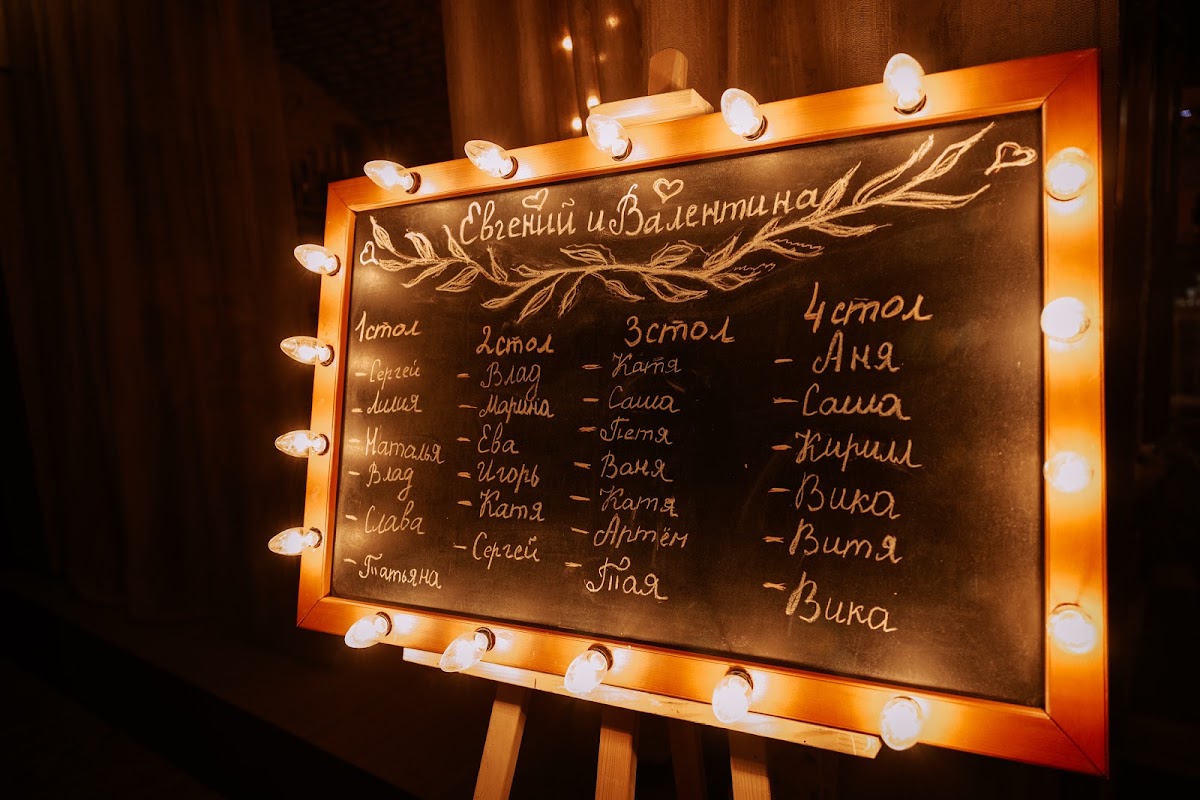 Евгений и Валентина
1 стол
- Сергей
- Лилия
- Наталья
- Влад
- Слава
- Татьяна
2 стол
- Влад
- Марина
- Ева
- Игорь
- Катя
- Сергей
3 стол
- Катя
- Саша
- Петя
- Ваня
- Катя
- Артём
- Тая
4 стол
- Аня
- Саша
- Кирилл
- Вика
- Витя
- Вика